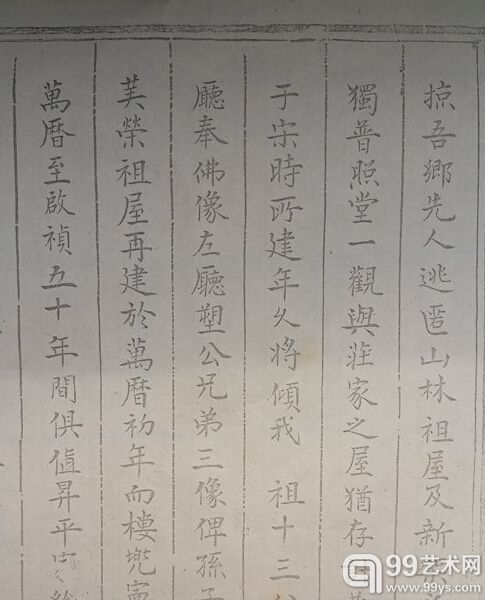 掠吾鄉先人逃匿山林祖屋及新
獨普照堂一觀與莊家之屋猶存
于宋時所建年久將傾我 祖十三
廳奉佛像左廳塑公兄弟三像俾孫子
芙蓉祖屋再建於萬曆初年而樓兠
萬曆至啟禎五十年間俱值昇平
99艺术网
www.99ys.com